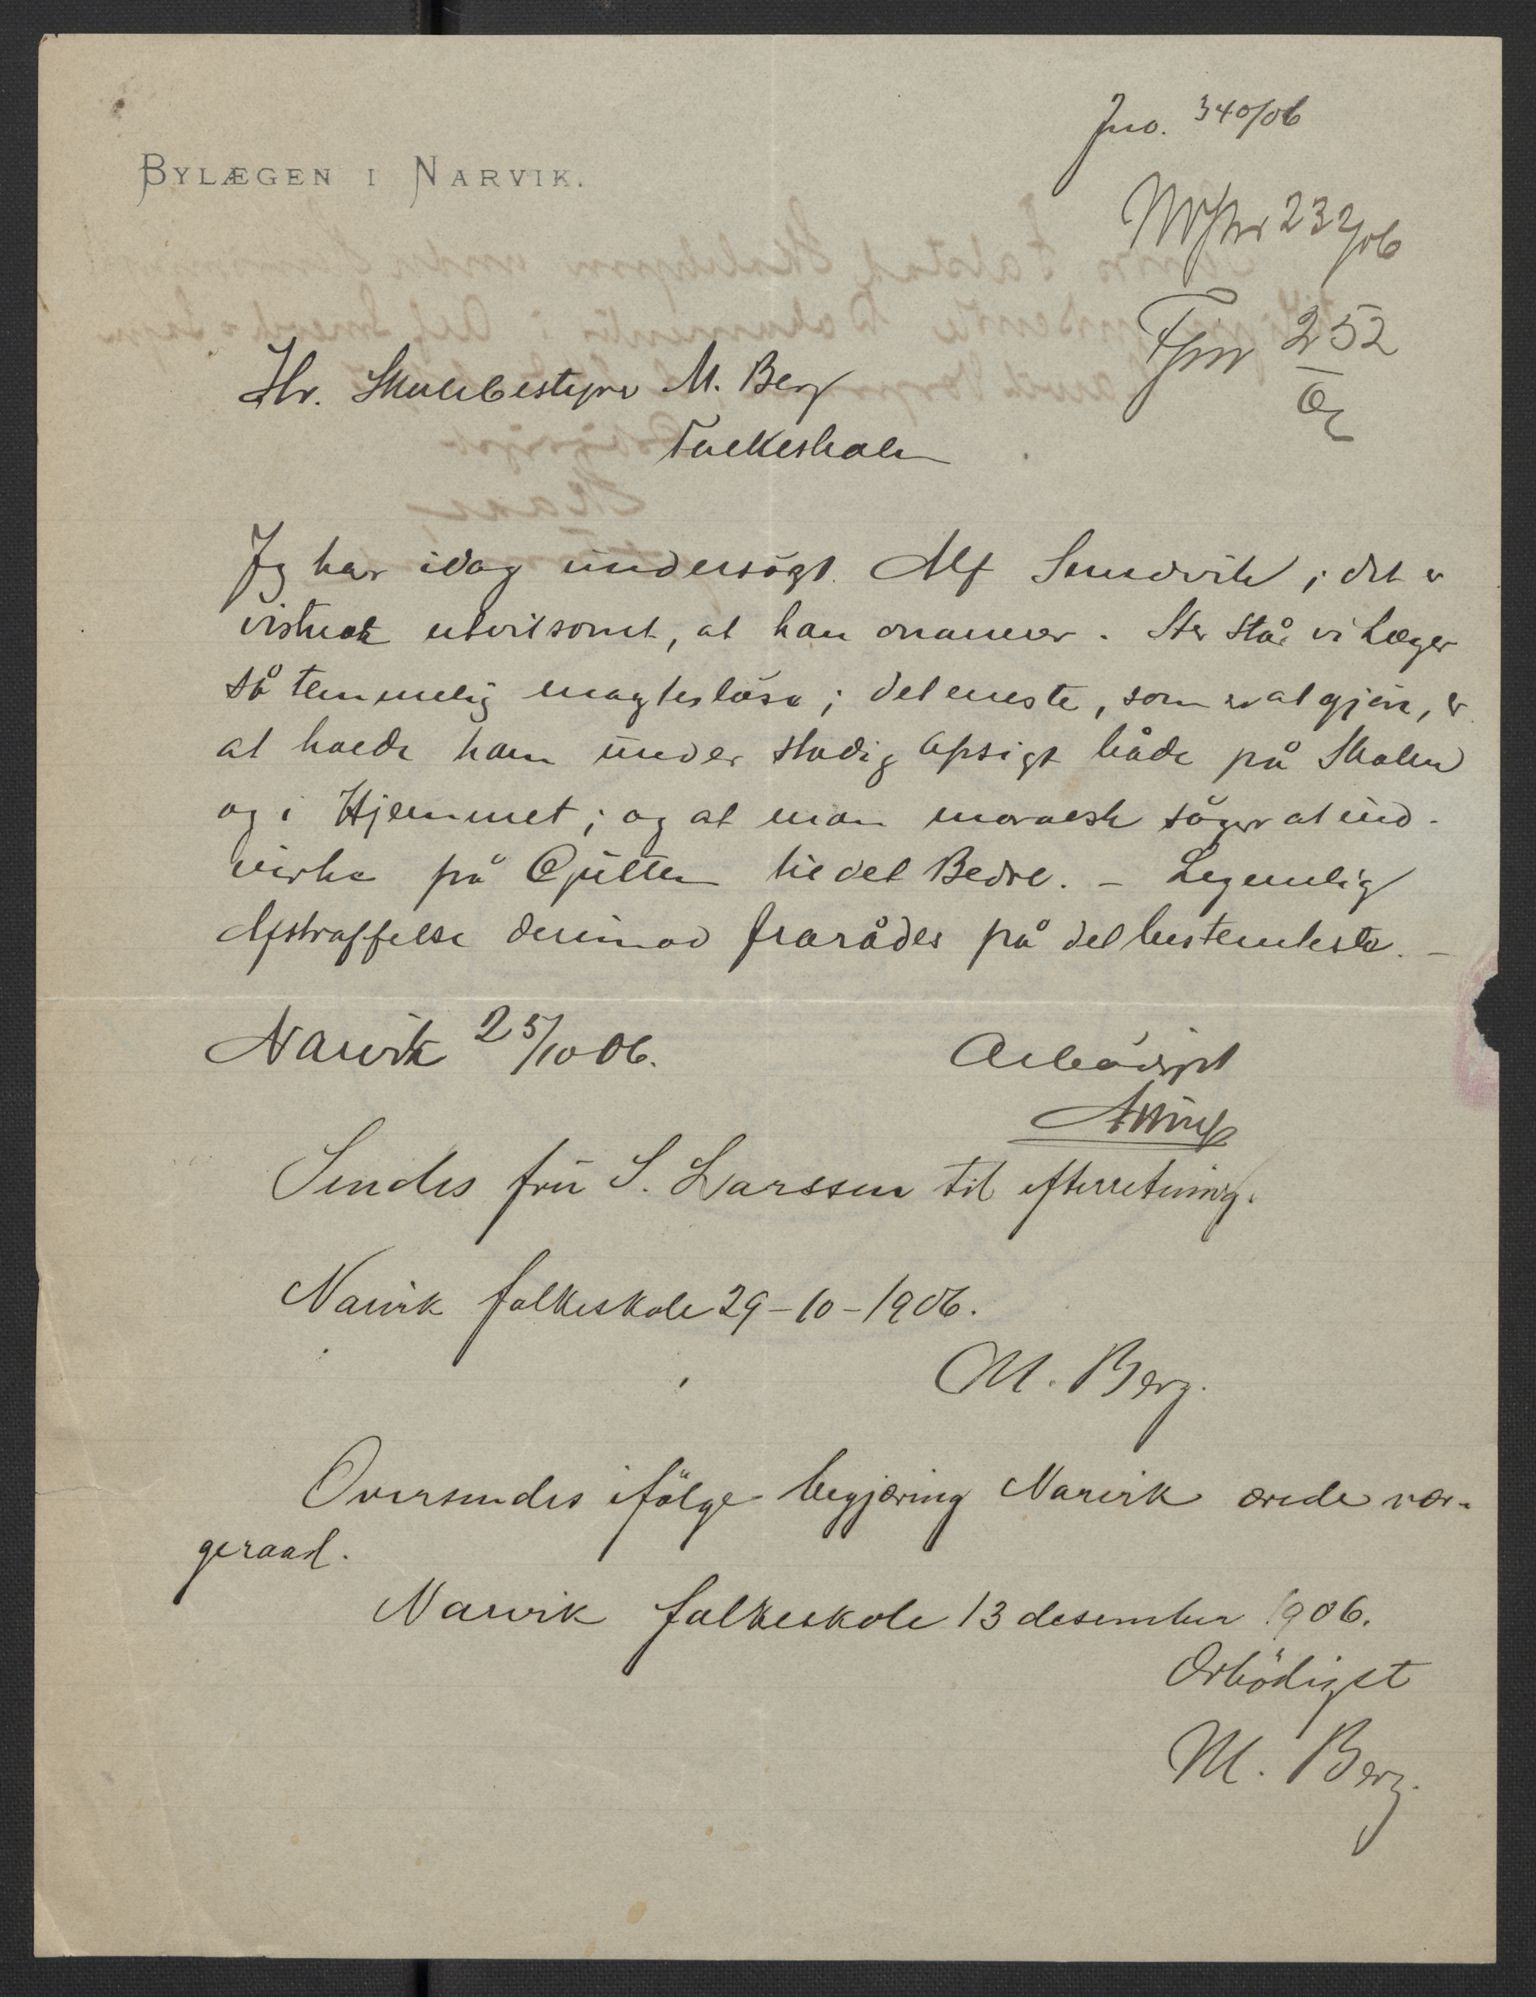 Jno. 340/06
BYLÆGEN I NARVIK.
232/06
252
Hr. Skolebestyrer M. Berg
Folkeskolen
Jeg har idag undersøgt Alf Sundvik; det er
vistnok utvilsomt, at han onanerer. Her står vi Læger
så temmelig magtesløse; det eneste, som er at gjøre, er
at holde ham under stadig Opsigt både på Skolen
og i Hjemmet; og at man moralsk søger at ind-
virke på Gutten til det Bedre. – Legemlig
Afstraffelse derimod frarådes på det bestemteste. –
Narvik 25/10 06.
Ærbödigst
Sendes fru S. Larssen til efterretning.
Narvik folkeskole 29-10-1906.
M. Berg.
Oversendes ifölge begjæring Narvik ærede vær-
geraad.
Narvik folkeskole 13 desember 1906.
Ærbödigst
M. Berg.